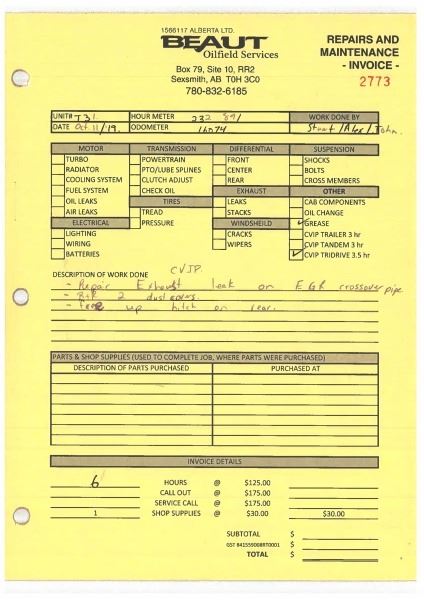 1566117 ALBERTA LTD.
BEAUT
Oilfield Services
Box 79, Site 10, RR2
Sexsmith, AB T0H 3C0
780-832-6185
REPAIRS AND
MAINTENANCE
- INVOICE -
2773
UNIT# T31 HOUR METER 232 891 WORK DONE BY
DATE Oct 11/19. ODOMETER 16074 Stuart/Alex/John.
MOTOR TRANSMISSION DIFFERENTIAL SUSPENSION
TURBO POWERTRAIN FRONT SHOCKS
RADIATOR PTO/LUBE SPLINES CENTER BOLTS
COOLING SYSTEM CLUTCH ADJUST REAR CROSS MEMBERS
FUEL SYSTEM CHECK OIL EXHAUST OTHER
OIL LEAKS TIRES LEAKS CAB COMPONENTS
AIR LEAKS TREAD STACKS OIL CHANGE
ELECTRICAL PRESSURE WINDSHEILD GREASE
LIGHTING CRACKS CVIP TRAILER 3 hr
WIRING WIPERS CVIP TANDEM 3 hr
BATTERIES CVIP TRIDRIVE 3.5 hr
DESCRIPTION OF WORK DONE CVIP.
- Repair Exhaust leak on EGR crossover pipe
- R+R 2 dust covers.
- Free up hitch on rear.
PARTS & SHOP SUPPLIES (USED TO COMPLETE JOB, WHERE PARTS WERE PURCHASED)
DESCRIPTION OF PARTS PURCHASED PURCHASED AT
INVOICE DETAILS
6 HOURS @ $125.00
CALL OUT @ $175.00
SERVICE CALL @ $175.00
1 SHOP SUPPLIES @ $30.00 $30.00
SUBTOTAL $
GST 841559008RT0001 $
TOTAL $